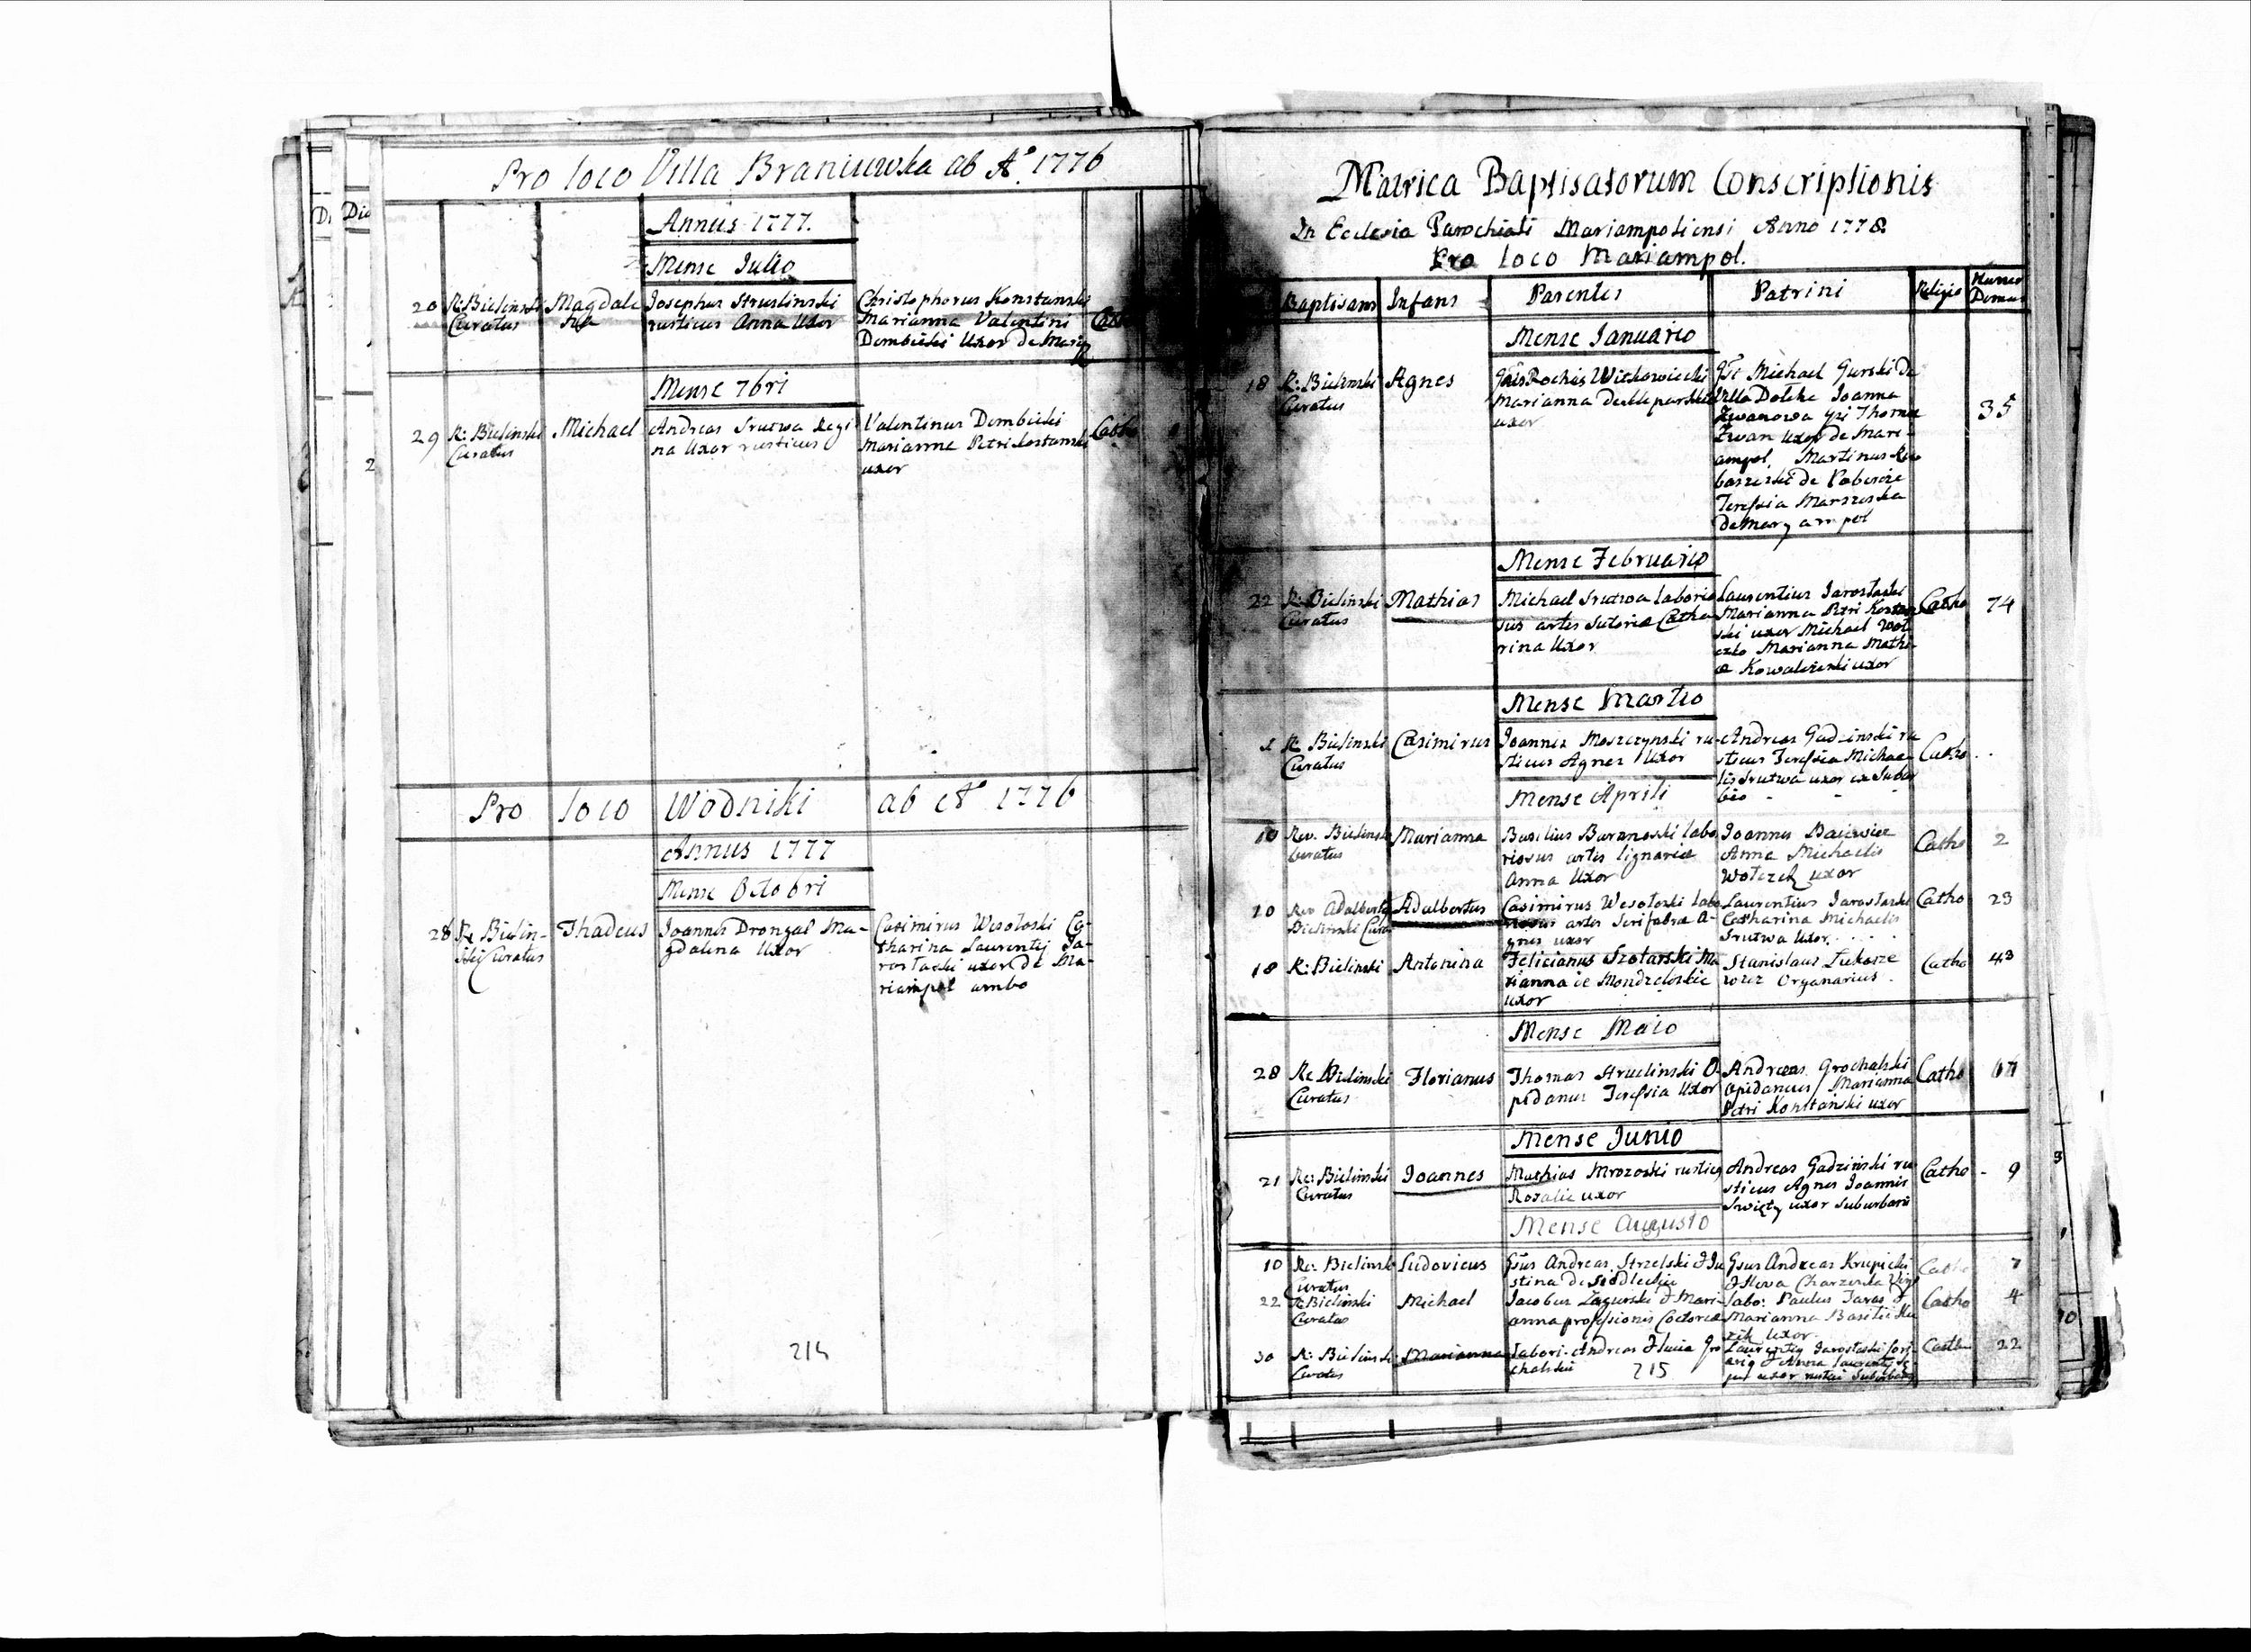 Pro loco Villa Braniuwka ab Aº 1776
Annus 1777.
Mense Julio
20 R: Bielinski Curatus
Magdale
na
Josephus Struslinski
rusticus Anna Uxor
Christophorus Konstanski
Marianna Valentini
Dembicki Uxor de Mary
Mense 7bri
29 R: Bielinski
Curatus
Michael
Andreas Srutwa Regi
na Uxor rusticus
Valentinus Dembicki
Marianna Petri Kostanski
uxor
Catho
Pro loco Wodniki ab Aº 1776
Annus 1777
Mense Octobri
28 R: Bielin-
ski Curatus
Thadeus
Joannes Drongal Ma-
gdalena Uxor
Casimirus Wesołoski Ca-
tharina Laurentij Ja-
rostaski uxor de Ma-
riampol ambo
214
Matrica Baptisatorum Conscriptionis
In Ecclesia Parochiali Mariampoliensi Anno 1778.
Pro loco Mariampol.
Baptisans Infans Parentes Patrini Religio Numer
Domus
Mense Januario
18 R: Bielinski
Curatus
Agnes
Rochus Witkowiecki
Marianna
uxor
Michael Gurski de
Villa Joanna
Iwanowa Thomae
Iwan Uxor de Mari-
ampol, Martinus
de
Teressia
de Maryampol
35
Mense Februario
22 R: Bielinski
Curatus
Mathias
Michael Srutwa laborio
sus artis Sutoriæ Catha
rina Uxor
Laurentius Jarostaski
Marianna Petri Kostan
ski uxor Michael Woł
czko Marianna Mathi-
æ Kowalczenki uxor
Catho
74
Mense Martio
R: Bielinski
Curatus
Casimirus
Joannes Moszczynski ru-
sticus Agnes Uxor
Andreas Gadzinski ru
sticus Teressia Michae-
lis Srutwa uxor ex Subur
bio
Catho
Mense Aprili
10 Rev. Bielinski
Curatus
Marianna
Basilius Baranoski labo
riosus artis lignariæ
Anna Uxor
Joannes
Anna Michaelis
Wołczek uxor
Catho
2
10 Rev Adalbertus
Bielinski Cura
Adalbertus
Casimirus Wesołoski labo
riosus artis A-
gnes uxor
Laurentius Jarostaski
Catharina Michaelis
Srutwa Uxor.
Catho
23
18 R: Bielinski
Antonina
Felicianus Szotarski Ma
rianna de Mondzeloskie
Uxor
Stanislaus Lukasze
wicz Organarius.
Catho
43
Mense Maio
28 Re Bielinski
Curatus
Florianus
Thomas Struslinski O-
pidanus Teressia Uxor
Andreas Grochalski
Opidanus Marianna
Petri Konstanski uxor
Catho
Mense Junio
21 Re: Bielinski
Curatus
Joannes
Mathias Mrozoski rusticus
Rosalia uxor
Andreas Gadzinski ru
sticus Agnes Joannis
Święty uxor Suburbani
Catho - 9
Mense Augusto
10 Re: Bielinski
Curatus
Ludovicus
Gsus Andreas Strzelski & Ju
stina de Siedleckie
Gsus Andreas Krupicki
Catho
7
22 R Bielinski
Curatus
Michael
Jacobus Zagurski & Mari-
anna professionis Coctoreæ
labo: Paulus Taras &
Marianna Basilii Ku
zik Uxor.
Catho
4
30 R: Bielinski
Curatus
Marianna
labori. Andreas & Gro
chalskie
Laurentij Jarostaski
Anna Laurentij
uxor
Catho
22
215